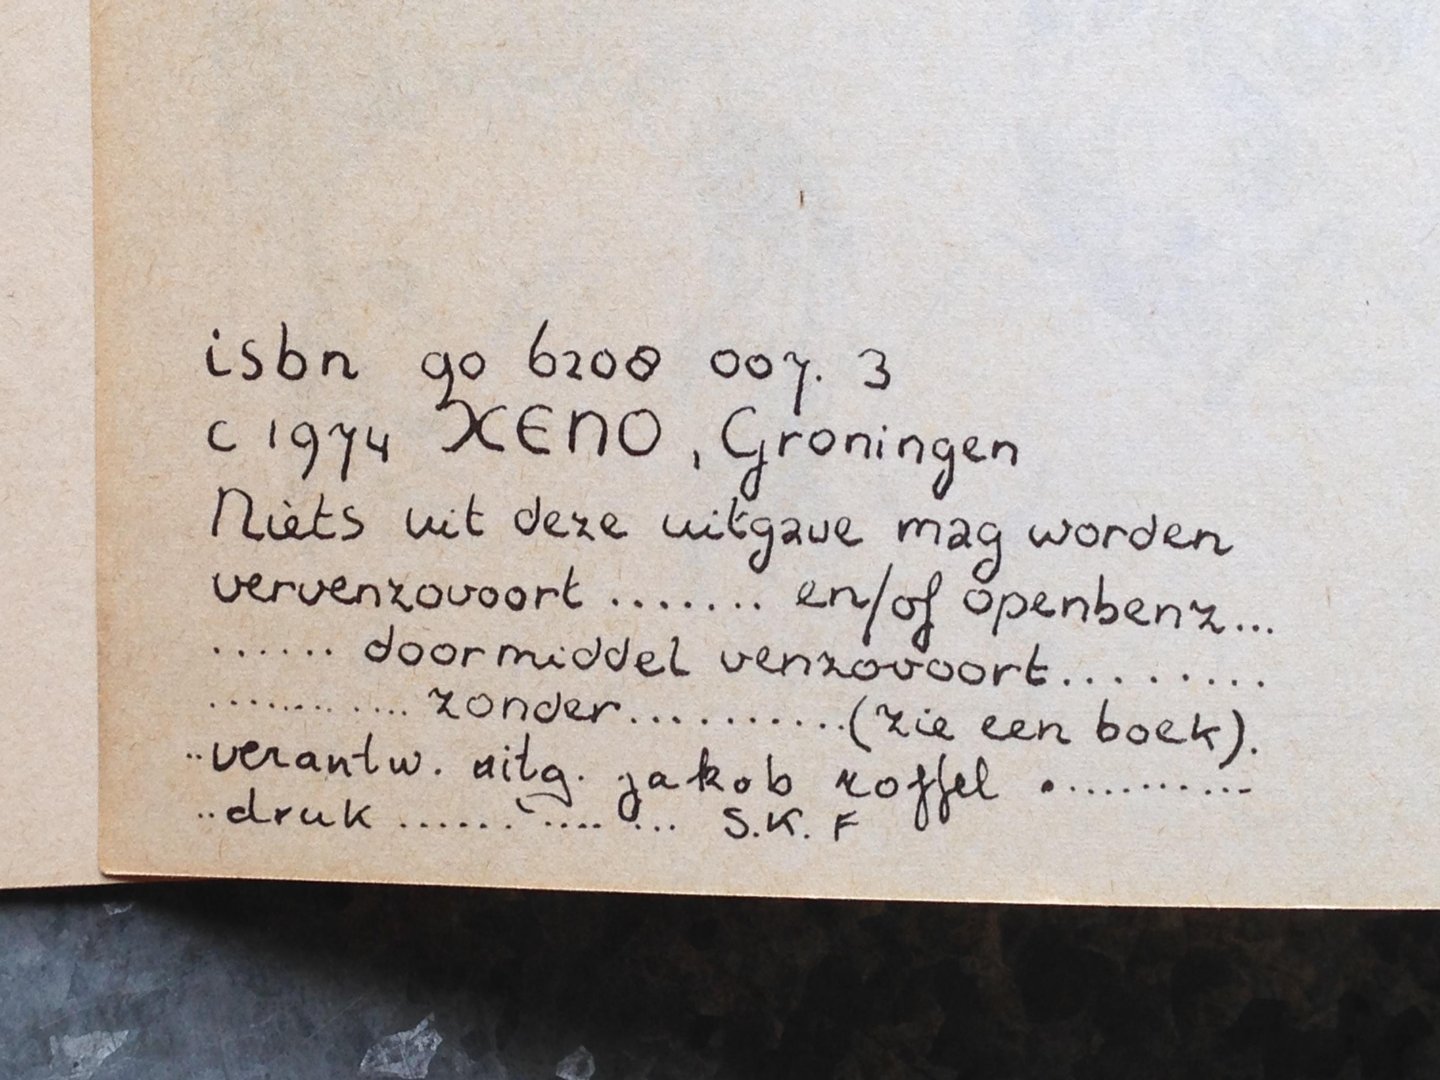 isbn 90 6208 007. 3
c 1974 XENO, Groningen
Niets uit deze uitgave mag worden
vervenzovoort ....... en/of openbenz...
...... doormiddel venzovoort.........
............ zonder..........(zie een boek).
..verantw. uitg. jakob roffel ...........
..druk ............... S.K. F